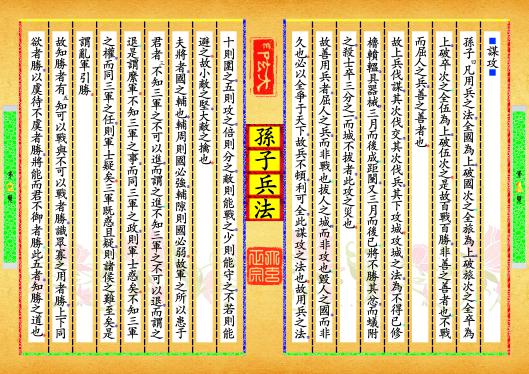 謀攻
孫子曰凡用兵之法全國為上破國次之全旅為上破旅次之全卒為
上破卒次之全伍為上破伍次之是故百戰百勝非善之善者也不戰
而屈人之兵善之善者也
故上兵伐謀其次伐交其次伐兵其下攻城攻城之法為不得已修
櫓轒轀具器械三月而後成距闉又三月而後已將不勝其忿而蟻附
之殺士卒三分之一而城不拔者此攻之災也
故善用兵者屈人之兵而非戰也拔人之城而非攻也毀人之國而非
久也必以全爭于天下故兵不頓利可全此謀攻之法也故用兵之法
孫子兵法
十則圍之五則攻之倍則分之敵則能戰之少則能守之不若則能
避之故小敵之堅大敵之擒也
夫將者國之輔也輔周則國必強輔隙則國必弱故軍之所以患于
君者三不知三軍之不可以進而謂之進不知三軍之不可以退而謂之
退是謂縻軍不知三軍之事而同三軍之政則軍士惑矣不知三軍
之權而同三軍之任則軍士疑矣三軍既惑且疑則諸侯之難至矣是
謂亂軍引勝
故知勝者有五知可以戰與不可以戰者勝識眾寡之用者勝上下同
欲者勝以虞待不虞者勝將能而君不御者勝此五者知勝之道也